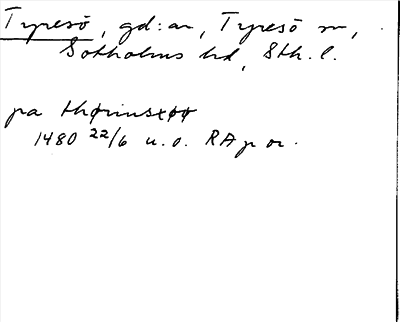 Tyresö, gd:ar, Tyresö sn,
Sotholms hd, Sth. l.
pa thørinsxøø
1480 22/6 u.o. RAp or.